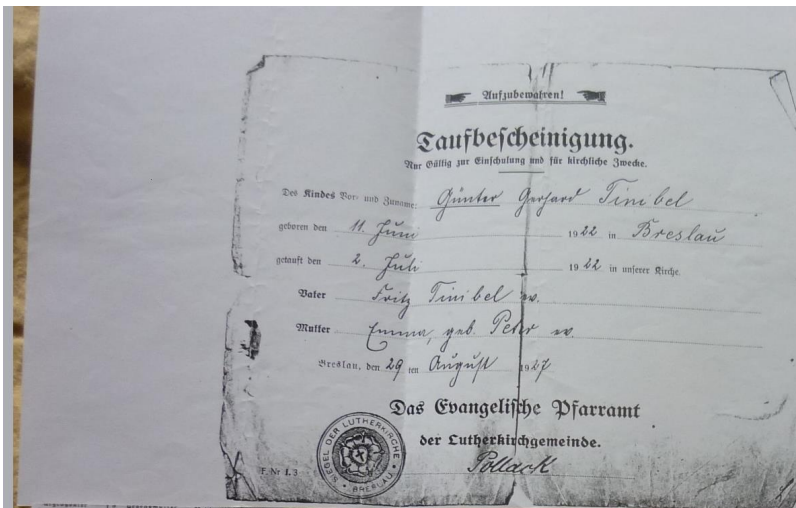 Aufzubewahren!
Taufbescheinigung.
Nur Gültig zur Einschulung und für kirchliche Zwecke.
Des Kindes Vor- und Zuname: Günter Gerhard Tinibel
geboren den 11. Juni 1922 in Breslau
getauft den 2. Juli 1922 in unserer Kirche.
Vater Fritz Tinibel ev.
Mutter Emma, geb. Peter ev.
Breslau, den 29 ten August 1927
Das Evangelische Pfarramt
der Lutherkirchgemeinde.
Pollack
SIEGEL DER LUTHERKIRCHE BRESLAU
F. Nr 1. 3